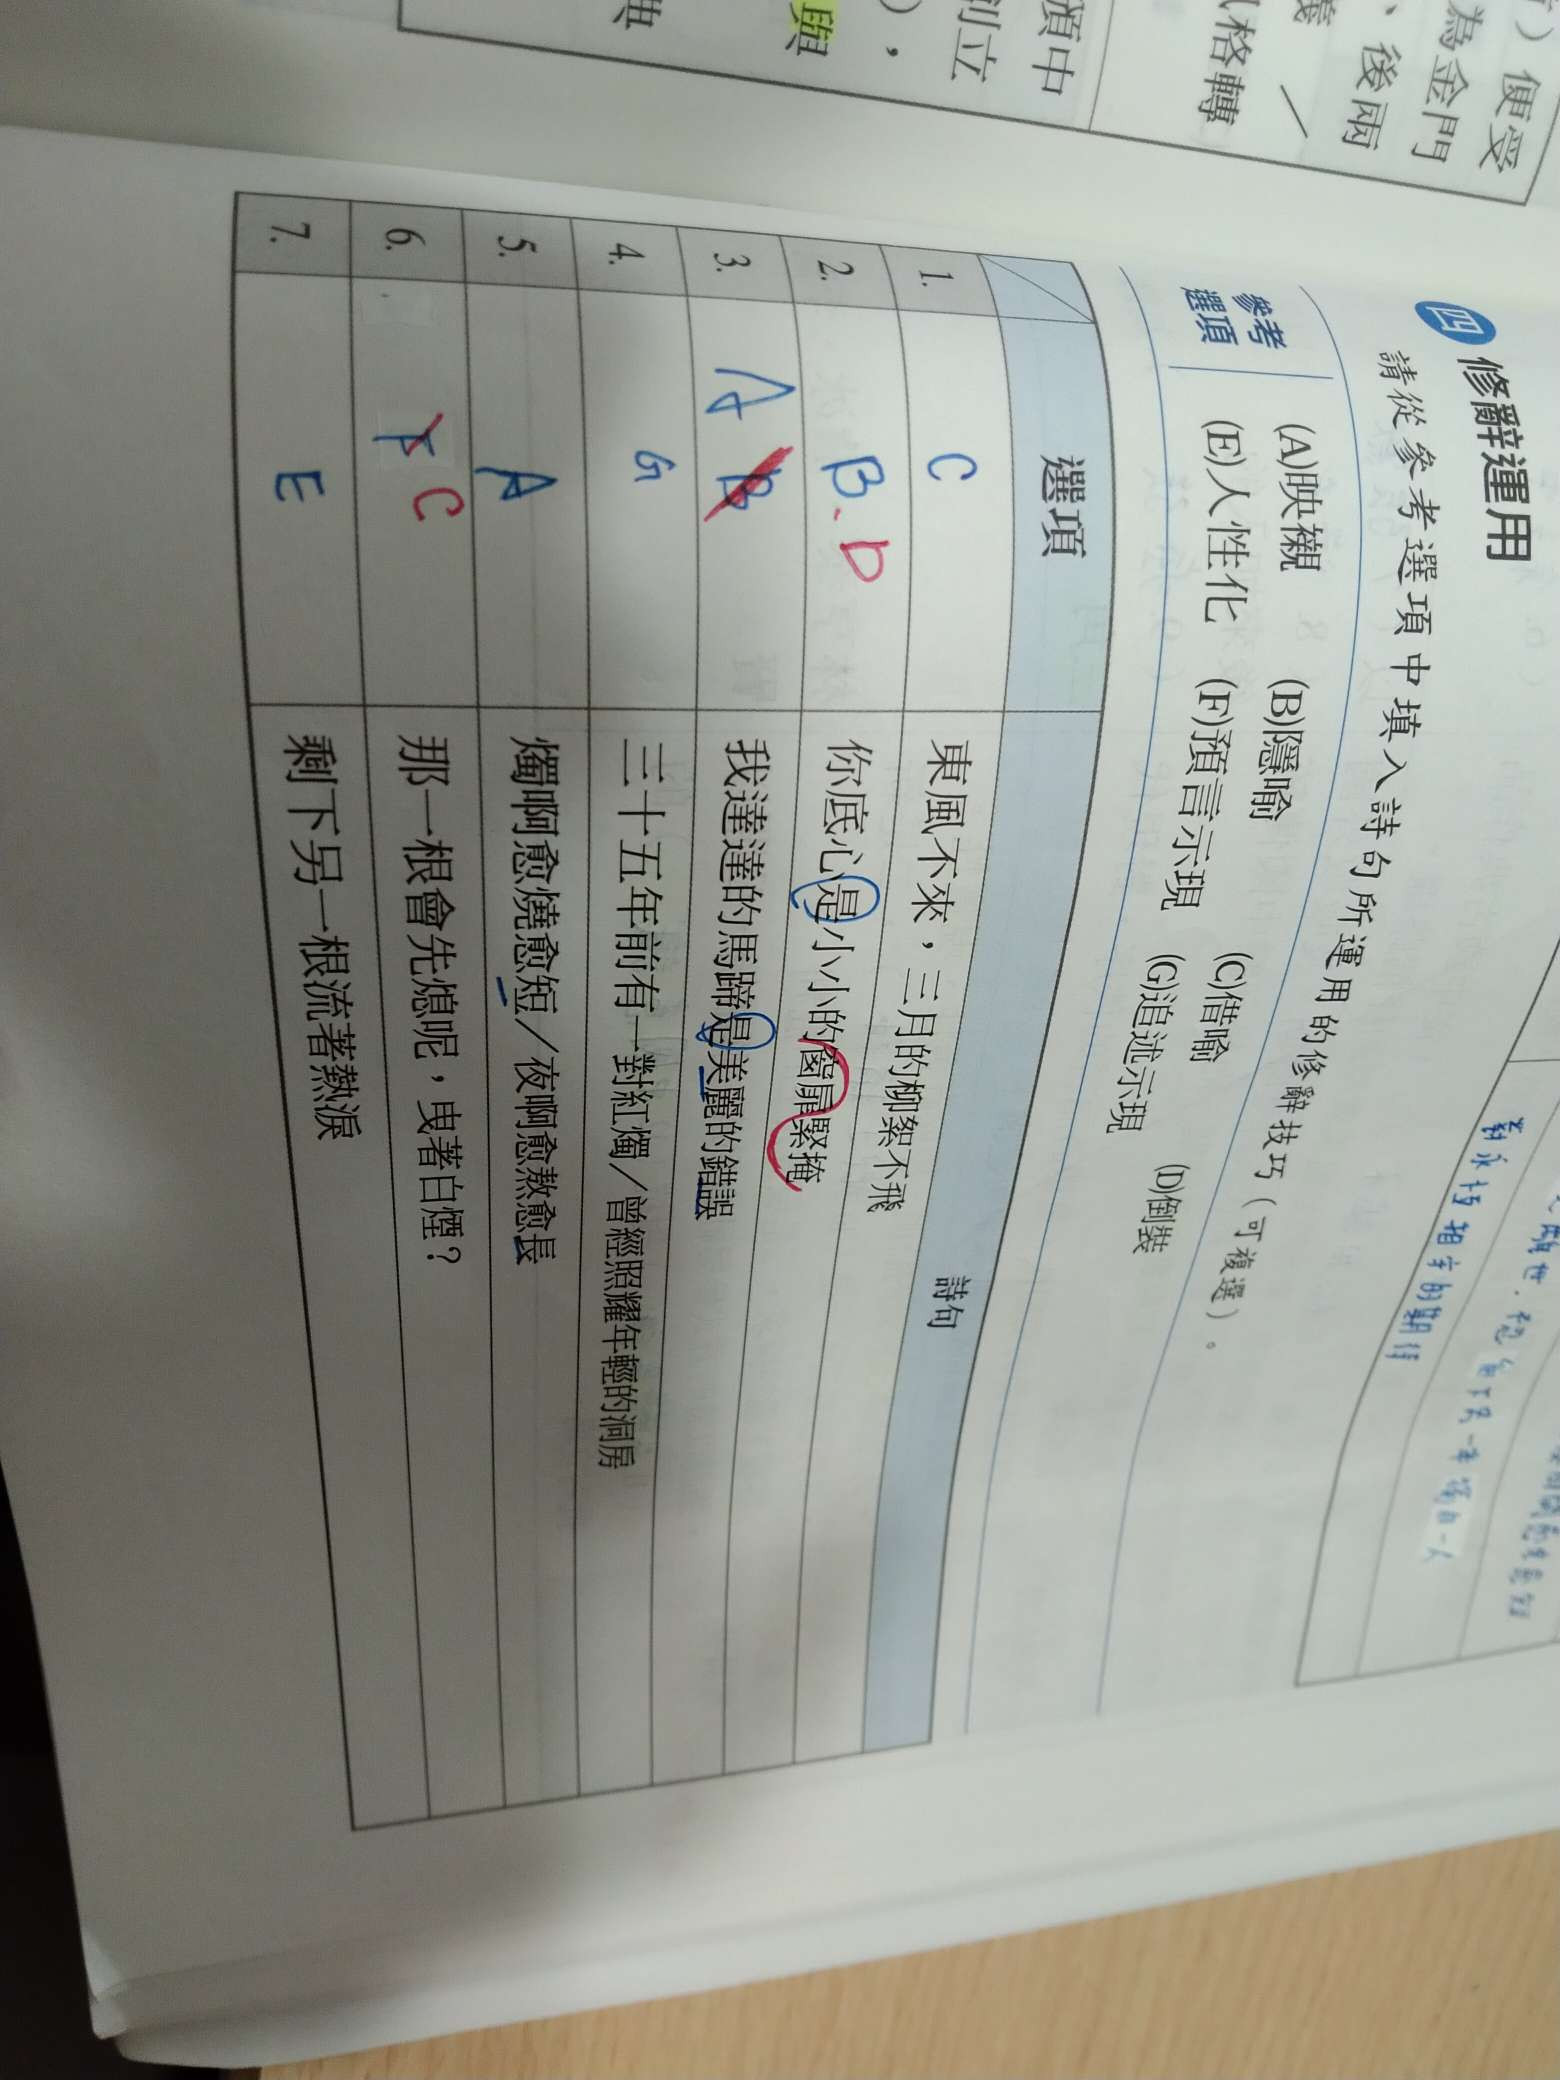 ）便受
為金門
、後兩
／
風格轉
頒中
創立
），
與
典
對永恆相守的期待
四 修辭運用
請從參考選項中填入詩句所運用的修辭技巧（可複選）。
參考選項
(A)映襯 (B)隱喻 (C)借喻 (D)倒裝
(E)人性化 (F)預言示現 (G)追述示現
選項 詩句
1. C 東風不來，三月的柳絮不飛
2. B、D 你底心是小小的窗扉緊掩
3. A B 我達達的馬蹄是美麗的錯誤
4. G 三十五年前有一對紅燭／曾經照耀年輕的洞房
5. A 燭啊愈燒愈短／夜啊愈熬愈長
6. F C 那一根會先熄呢，曳著白煙？
7. E 剩下另一根流著熱淚